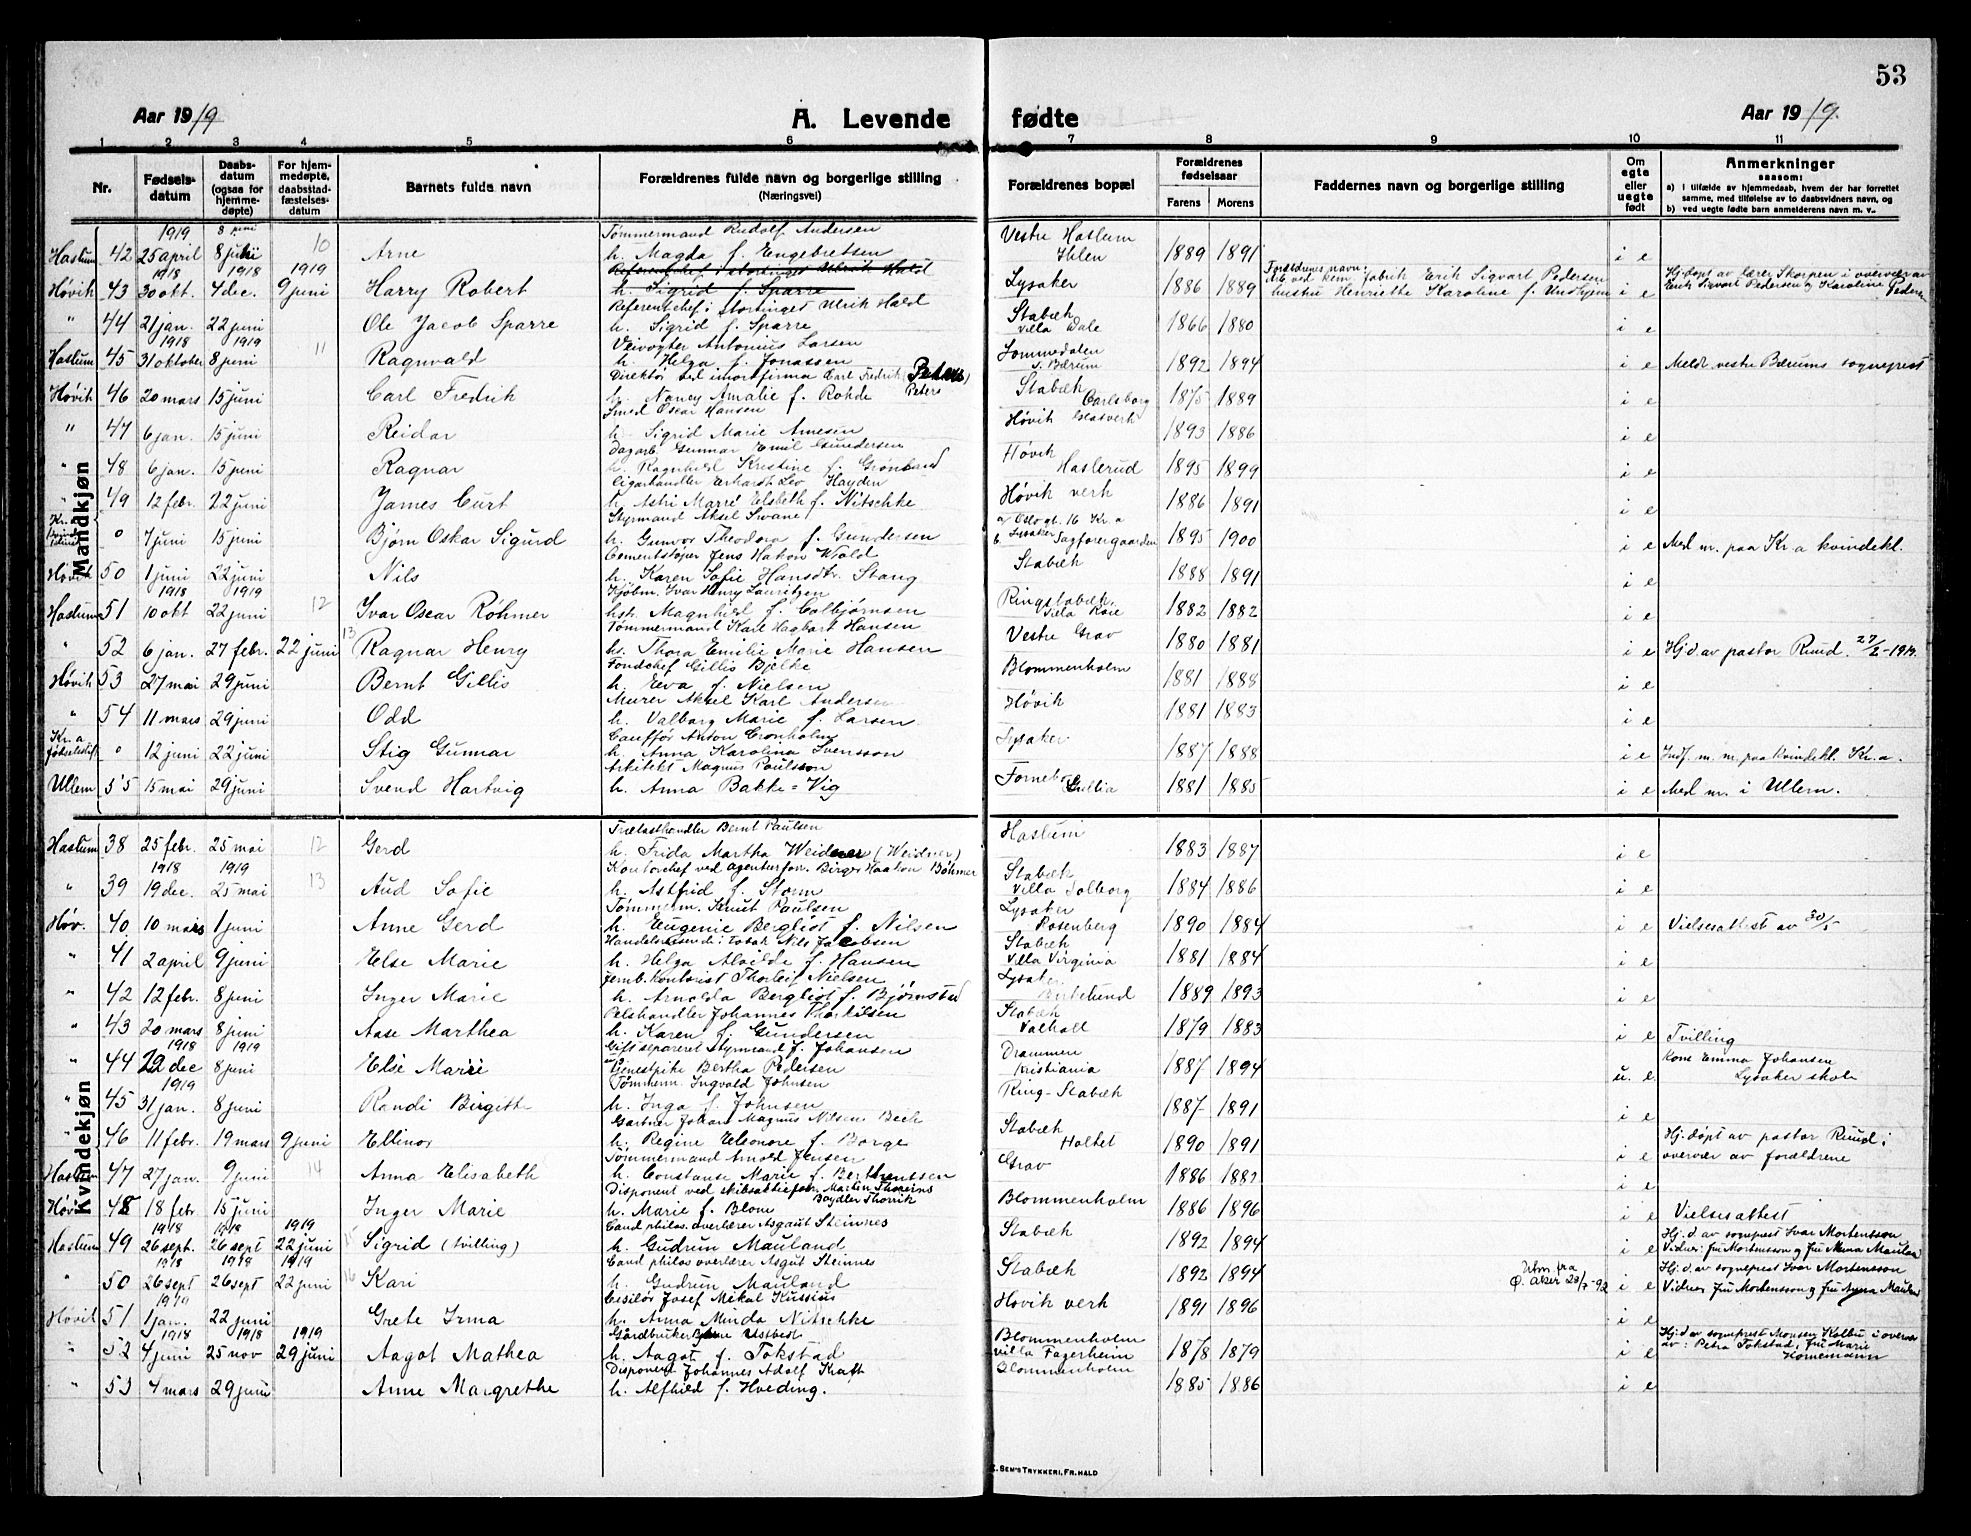 53
Aar 1919 A. Levende fødte Aar 1919.
1 2 3 4 5 6 7 8 9 10 11
Nr. Fødselsdatum Daabsdatum (ogsaa for hjemmedøpte) For hjemmedøpte, daabsstadfæstelsesdatum Barnets fulde navn Forældrenes fulde navn og borgerlige stilling (Næringsvei) Forældrenes bopæl Forældrenes fødselsaar Farens Morens Faddernes navn og borgerlige stilling Om egte eller uegte født Anmerkninger saasom:
a) i tilfælde av hjemmedaab, hvem der har forrettet samme, med tilføielse av to daabsvidners navn, og
b) ved uegte fødte barn anmelderens navn m. v.
Mandkjøn
1919 8 juni Tømmermand Rudolf Andersen Vestre Haslum
Haslum 42 25 april 8 juni 10 Arne h. Magda f. Engebretsen Ihlen 1889 1891 i e
1918 1918 1919 Referentchef i stortinget Ulrik Hald Forældrenes navn: Hj.døpt av lærer Skorpen i overvær av
Høvik 43 30 okt. 4 dec. 9 juni Harry Robert h. Sigrid f. Sparre Lysaker 1886 1889 Arb. ved kem. fabrik Erik Sigvart Pedersen hustru Henriette Karoline f. i e Erik Sigvart Pedersen og Karoline Pedersen
Referentchef i Stortinget Ulrik Hald Stabæk
" 44 21 jan. 22 juni Ole Jacob Sparre h. Sigrid f. Sparre Villa Dale 1866 1880 i e
1918 1919 Veivogter Antonius Larsen Lommedalen
Haslum 45 31 oktober 8 juni 11 Ragnvald h. Helga f. Jonassen v. Bærum 1892 1894 i e Meldt vestre Bærums sogneprest
Direktør ved importfirma Carl Fredrik (Peters) Stabæk
Høvik 46 20 mars 15 juni Carl Fredrik h. Nancy Amalie f. Rohde Peters Carlsborg 1875 1889 i e
Smed Oscar Hansen Høvik Glasverk
" 47 6 jan. 15 juni Reidar h. Sigrid Marie Arnesen 1893 1886 i e
Dagarb. Gunnar Emil Gundersen Høvik
" 48 6 jan. 15 juni Ragnar h. Ragnhild Kristine f. Grønlund Haslerud 1895 1899 i e
Cigarhandler Erhardt Leo Hayden
" 49 12 febr. 22 juni James Curt h. Astri Marie Elsbeth f. Nitschke Høvik verk 1886 1891 i e
Styrmand Aksel Svane a/ Oslogt. 16 Kr.a
Kr.a 0 7 juni 15 juni Bjørn Oskar Sigurd h. Gunvor Theodora f. Gundersen b. Lysaker Sagførergaarden 1895 1900 i e Med m. paa Kr.a kvindekl.
Cementstøper Jens Hakon Wold
Høvik 50 1 juni 22 juni Nils h. Karen Sofie Hansdtr. Stang Stabæk 1888 1891 i e
1918 1919 Kjøbm. Ivar Henry Lauritzen Ringstabæk
Haslum 51 10 okt 22 juni 12 Ivar Oscar Røhmer hst. Magnhild f. Colbjørnsen Villa Roie 1882 1882 i e
Tømmermand Karl Hagbart Hansen
" 52 6 jan. 27 febr. 22 juni 13 Ragnar Henry hs. Thora Emilie Marie Hansen Vestre Grav 1880 1881 i e Hj.d. av pastor Ruud. 27/2-1919.
Fondschef Gillis Bjelke
Høvik 53 27 mai 29 juni Bernt Gillis h. Eva f. Nielsen Blommenholm 1881 1888 i e
Murer Aksel Karl Andersen
" 54 11 mars 29 juni Odd h. Valborg Marie f. Larsen Høvik 1881 1883 i e
Kr.a Chauffør Anton Cronholm
fødselsstif. 0 12 juni 22 juni Stig Gunnar h. Anna Karolina Svensson Lysaker 1887 1888 i e Indf. m. nr. paa Kvindekl. Kr.a.
Arkitekt Magnus Poulsson Fornebo
Ullern 55 15 mai 29 juni Svend Hartvig h. Anna Bakke-Vig Gullia 1881 1885 i e Med nr. i Ullern.
Kvindekjøn
Trælasthandler Bernt Paulsen
Haslum 38 25 febr. 25 mai 12 Gerd h. Frida Martha Weidner (Weidner) Haslum 1883 1887 i e
1918 1919 Kontorchef ved agenturforr. Birger Haakon Bøhmer Stabæk
" 39 19 dec. 25 mai 13 Aud Sofie h. Astrid f. Storm Villa Solborg 1884 1886 i e
Tømmerm. Knut Paulsen Lysaker
Høv. 40 10 mars 1 juni Anne Gerd h. Eugenie Bergliot f. Nilsen Rosenberg 1890 1884 i e Vielsesattest av 30/5
Handelsreisende i tobak Nils Jacobsen Stabæk
" 41 2 april 9 juni Else Marie h. Helga Alvilde f. Hansen Villa Virginia 1881 1884 i e
Jernb.kontorist Thorleif Nielsen Lysaker
" 42 12 febr. 8 juni Inger Marie h. Arnolda Bergliot f. Bjørnstad 1889 1893 i e
Pelshandler Johannes Thorkilsen Stabæk
" 43 20 mars 8 juni Aase Marthea h. Karen f. Gundersen Valhall 1879 1883 i e Tvilling
1918 1919 Gift separeret styrmand J. Johansen Drammen Kone Emma Johansen
" 44 29 dec 8 juni Else Marie ug. Tjenestpike Bertha Pedersen Kristiania 1887 1894 u. e. Lysaker skole
1919 Tømmerm. Ingvald Johnsen
" 45 31 jan. 8 juni Randi Birgitte h. Inga f. Johnsen Ring-Stabæk 1887 1891 i e
Gartner Johan Magnus Nilsen Bech Stabæk Hj.døpt av pastor Ruud i
" 46 11 febr. 19 mars 9 juni Ellinor h. Regine Eleonore f. Borge Holtet 1890 1891 i e overvær av forældrene
Tømmermand Arnold Jensen
Haslum 47 27 jan. 9 juni 14 Anna Elisabeth h. Constanse Marie f. Berthinussen Grav 1886 1882 i e
Disponent ved skibsaktieforr. Martin Thoreins Bøydler Thorvik
Høvik 48 18 febr. 15 juni Inger Marie h. Marie f. Blom Blommenholm 1886 1896 i e Vielsesattest
1918 1918 1919 Cand philos. overlærer Asgaut Steinnes Hj.d. av sogneprest Ivar Mortensson
Haslum 49 26 sept. 26 sept 22 juni 15 Sigrid (tvilling) h. Gudrun Mauland Stabæk 1892 1894 i e Vidner: fru Mortensson og fru Anna Mauland
1918 1918 1919 Cand philos overlærer Asgut Steinnes Utm. fra Hj.d. av sogneprest Ivar Mortensson
" 50 26 sept 26 sept 22 juni 16 Kari h. Gudrun Mauland Stabæk 1892 1894 Ø. Aker 28/7-92 i e Vidner fru Mortensson og fru Anna Mauland
1919 Ciselør Josef Mikal Kussius
Høvik 51 1 jan. 22 juni Grete Irma h. Anna Minda Nitschke Høvik verk 1891 1896 i e
1918 1918 1919 Gårdbruker Arne Ustbest Blommenholm Hj.d av sogneprest Monsen Kolbu i overvær
" 52 4 juni 25 nov 29 juni Aagot Mathea h. Aagot f. Tokstad Villa Fagerheim 1878 1879 i e av: Petra Tokstad, fru Marie Hornemann
Disponent Johannes Adolf Kraft
" 53 4 mars 29 juni Anne Margrethe h. Alfhild f. Hveding. Blommenholm 1885 1886 i e
E. SEM'S TRYKKERI, FR.HALD